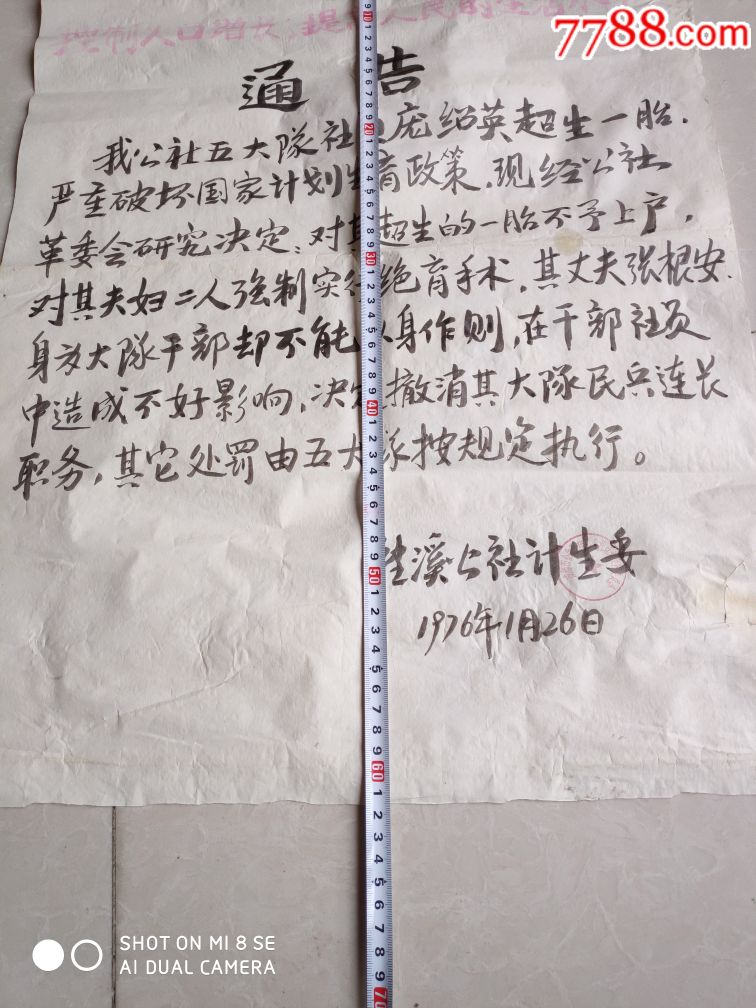 7788.com
控制人口增长 提 人民的生活
通告
我公社五大队社 庞绍英超生一胎.
严重破坏国家计划 育政策.现经公社
革委会研究决定:对其超生的一胎不予上户,
对其夫妇二人强制实行绝育手术,其丈夫张根安.
身为大队干部却不能 身作则,在干部社员
中造成不好影响,决定撤消其大队民兵连长
职务,其它处罚由五大 按规定执行。
溪公社计生委
1976年1月26日
SHOT ON MI 8 SE
AI DUAL CAMERA